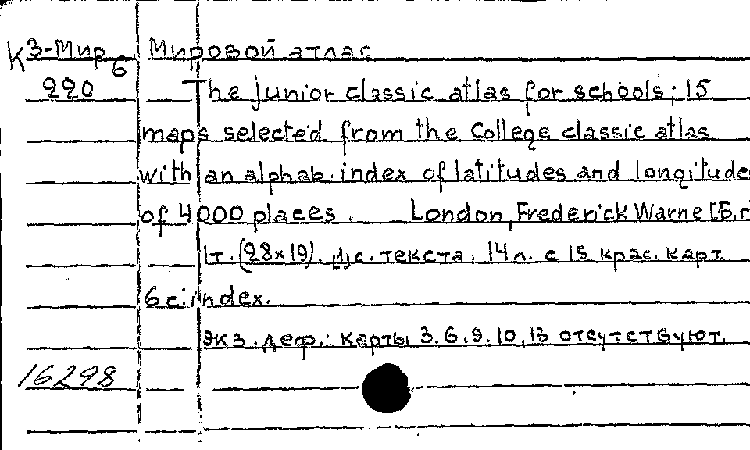 К3-Мир6 Мировой атлас
220 The junior classic atlas for schools; 15
maps selected from the College classic atlas
with an alphab. index of latitudes and longitude
of 4000 places. London, Frederick Warne [Б.г
1т. (28x19). с. текста, 14 л. с 15 крас. карт
6 с. index.
Экз. деф.: карты 3, 6, 9, 10, 13 отсутствуют.
16298